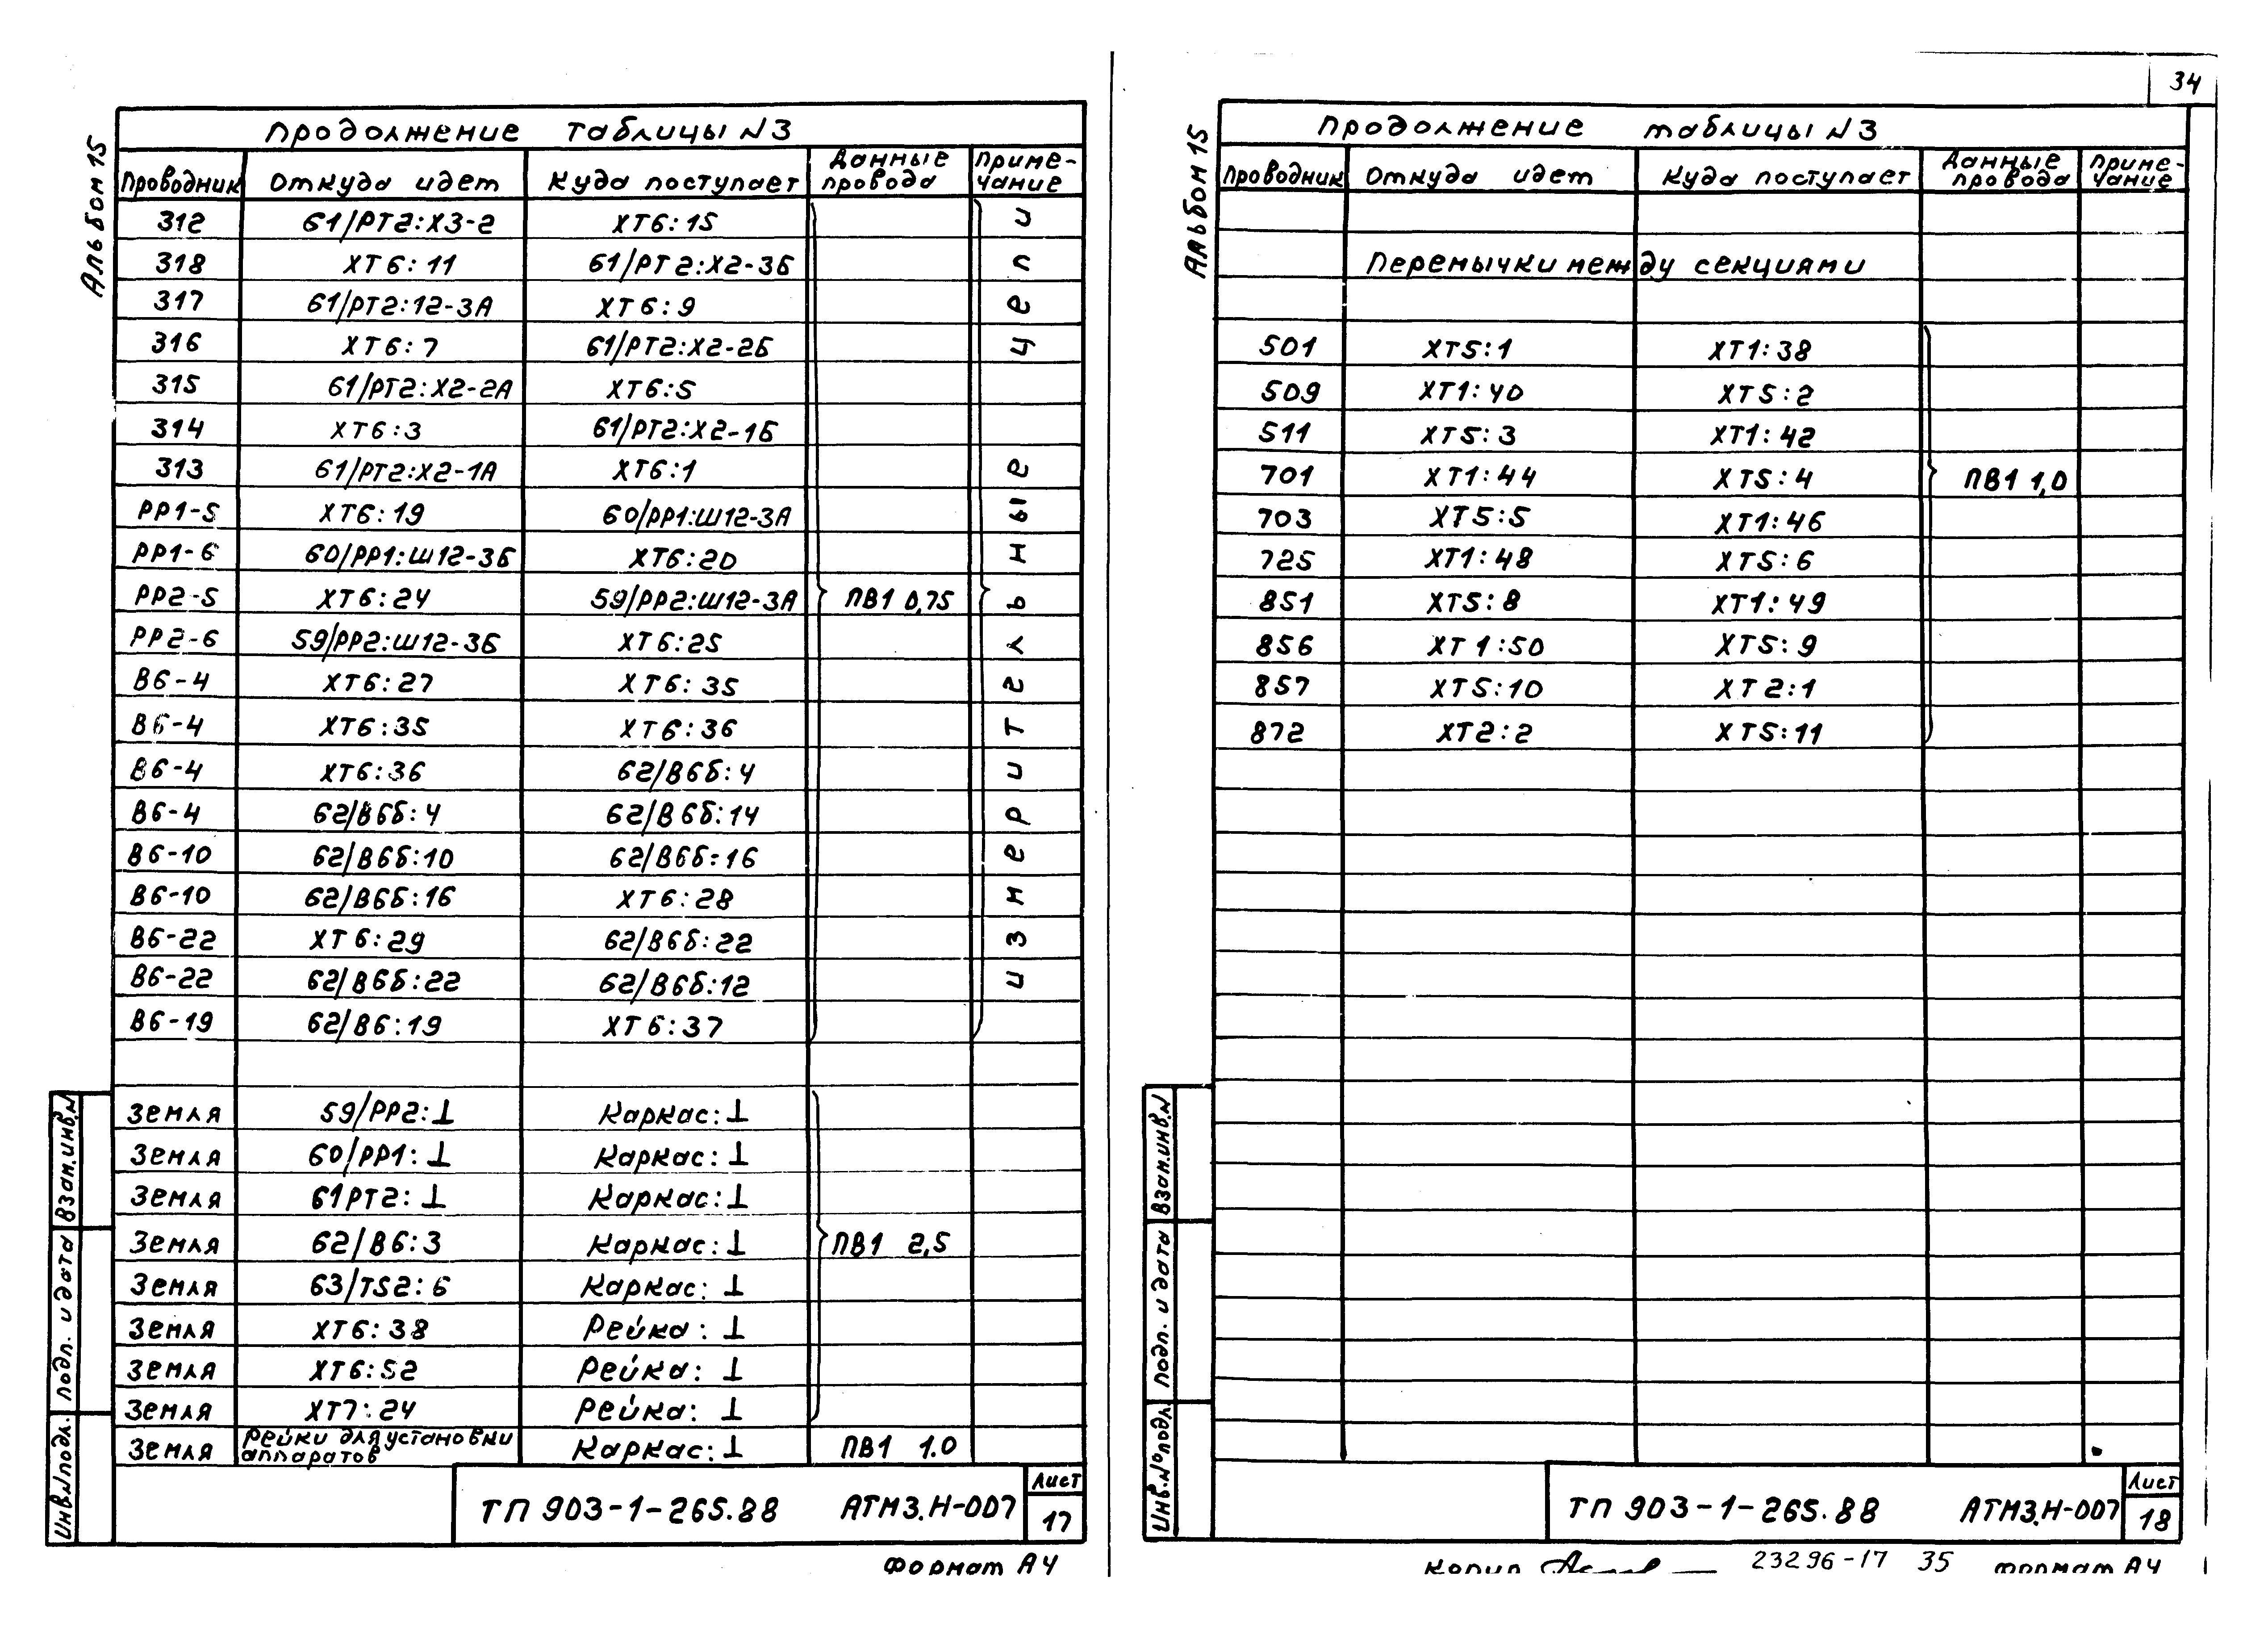 Альбом 15
Продолжение таблицы N3
Проводник Откуда идет Куда поступает Данные провода Приме-чание
312 61/РТ2:Х3-2 ХТ6:15
318 ХТ6:11 61/РТ2:Х2-3Б
317 61/РТ2:12-3А ХТ6:9
316 ХТ6:7 61/РТ2:Х2-2Б
315 61/РТ2:Х2-2А ХТ6:5
314 ХТ6:3 61/РТ2:Х2-1Б
313 61/РТ2:Х2-1А ХТ6:1
РР1-5 ХТ6:19 60/РР1:Ш12-3А
РР1-6 60/РР1:Ш12-3Б ХТ6:20
РР2-5 ХТ6:24 59/РР2:Ш12-3А ПВ1 0,75
РР2-6 59/РР2:Ш12-3Б ХТ6:25
В6-4 ХТ6:27 ХТ6:35
В6-4 ХТ6:35 ХТ6:36
В6-4 ХТ6:36 62/В6б:4
В6-4 62/В6б:4 62/В6б:14
В6-10 62/В6б:10 62/В6б:16
В6-10 62/В6б:16 ХТ6:28
В6-22 ХТ6:29 62/В6б:22
В6-22 62/В6б:22 62/В6б:12
В6-19 62/В6:19 ХТ6:37
измерительные цепи
Земля 59/РР2:⊥ Каркас:⊥
Земля 60/РР1:⊥ Каркас:⊥
Земля 61РТ2:⊥ Каркас:⊥
Земля 62/В6:3 Каркас:⊥ ПВ1 2,5
Земля 63/TS2:6 Каркас:⊥
Земля ХТ6:38 Рейка:⊥
Земля ХТ6:52 Рейка:⊥
Земля ХТ7:24 Рейка:⊥
Земля Рейки для установки аппаратов Каркас:⊥ ПВ1 1.0
Взам.инв.N
Подп. и дата
Инв.N подл.
ТП 903-1-265.88 АТМ3.Н-007
Лист
17
Формат А4
34
Альбом 15
Продолжение таблицы N3
Проводник Откуда идет Куда поступает Данные провода Приме-чание
Перемычки между секциями
501 ХТ5:1 ХТ1:38
509 ХТ1:40 ХТ5:2
511 ХТ5:3 ХТ1:42
701 ХТ1:44 ХТ5:4 ПВ1 1,0
703 ХТ5:5 ХТ1:46
725 ХТ1:48 ХТ5:6
851 ХТ5:8 ХТ1:49
856 ХТ1:50 ХТ5:9
857 ХТ5:10 ХТ2:1
872 ХТ2:2 ХТ5:11
Взам.инв.N
Подп. и дата
Инв.N° подл.
ТП 903-1-265.88 АТМ3.Н-007
Лист
18
Копир 23296-17 35 Формат А4